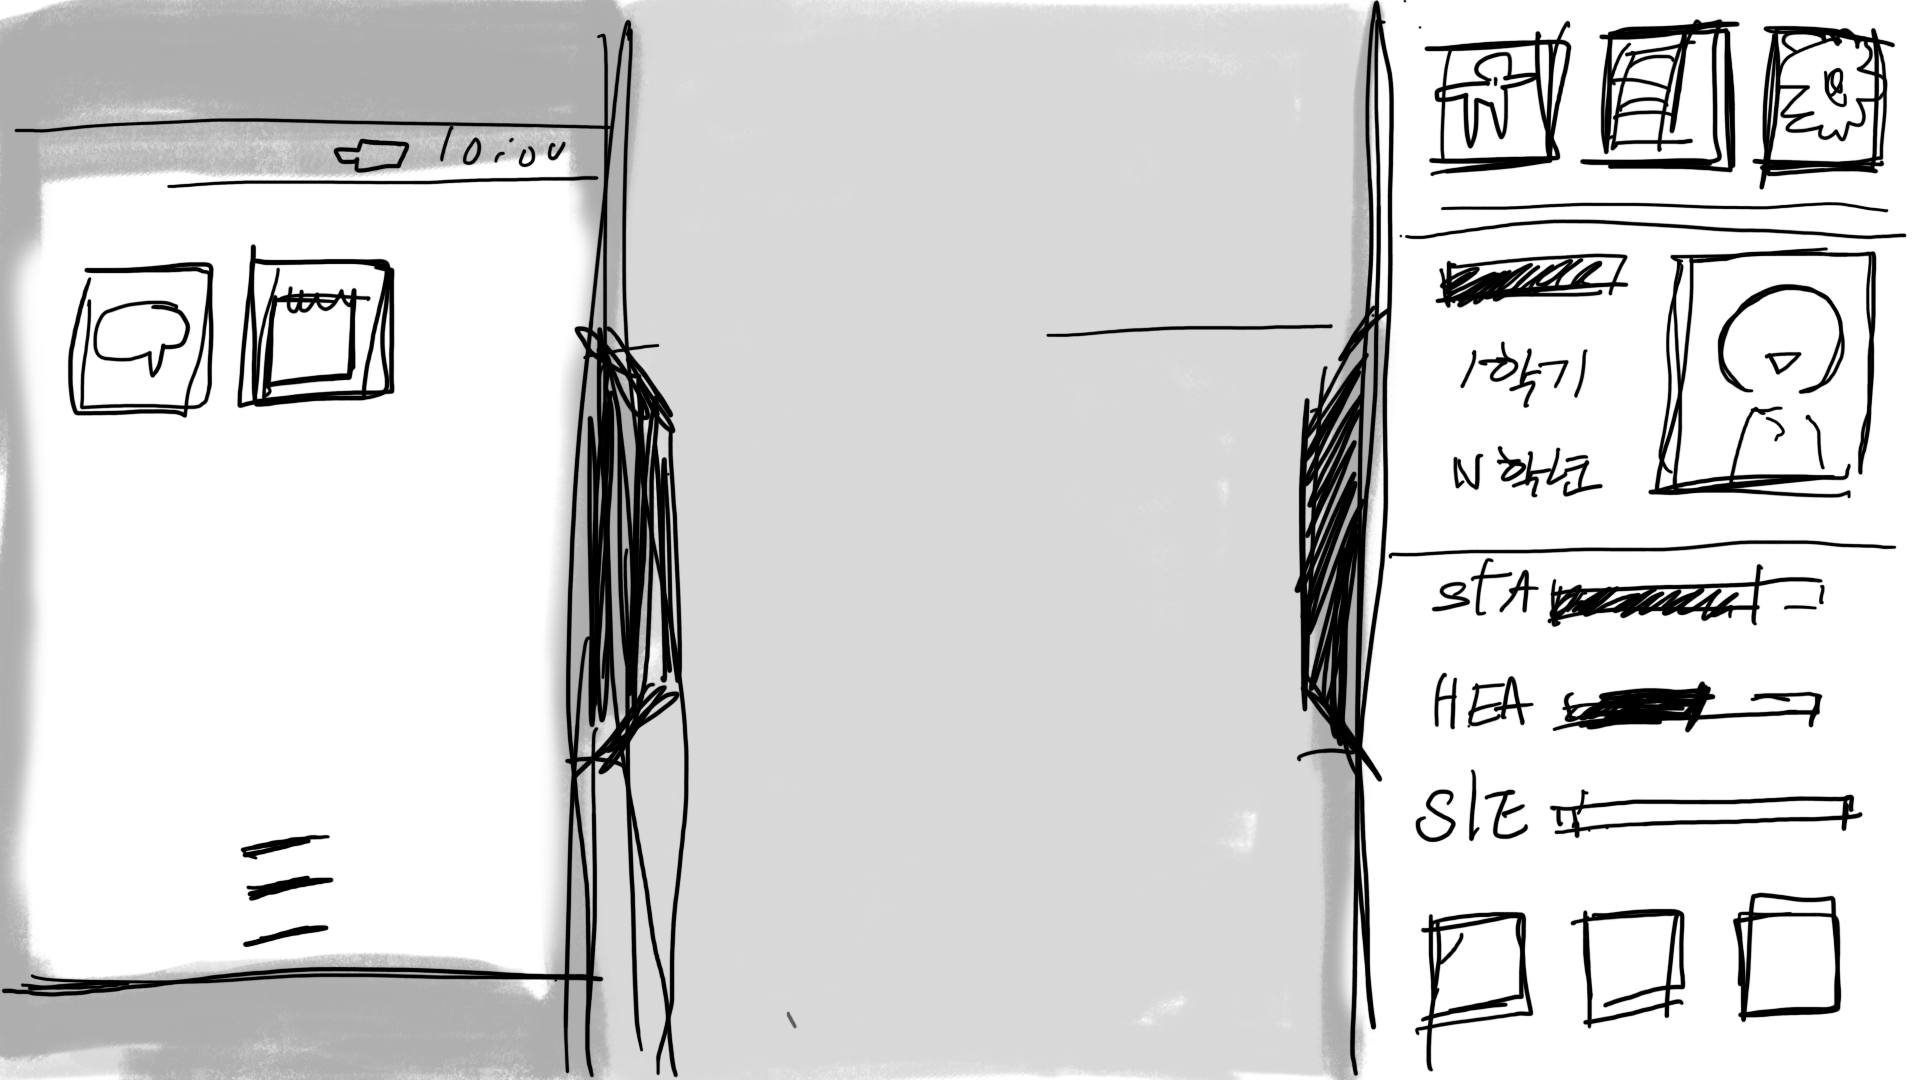 10:00
1학기
N학년
STA
HEA
SLE